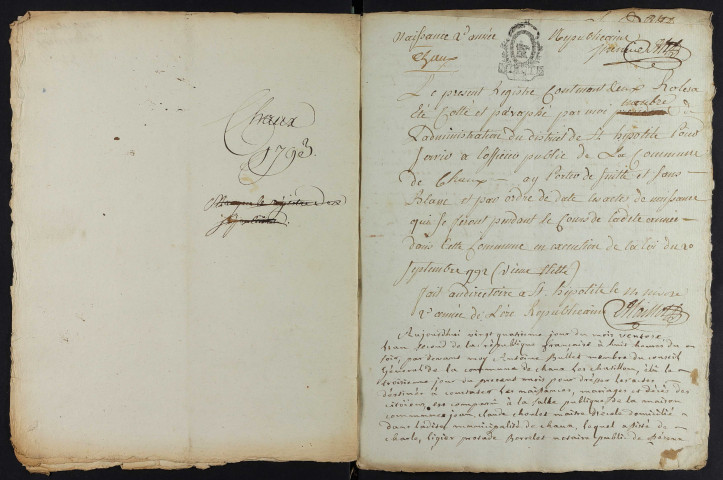 Chaux
1793
Naissance 2e année Republicaine
Chaux
Le present Registre Contenant deux Roles a
Eté Cotté et paraphé par moi membre de
L'administration du district de St hypolite Pour
servir a l'officier public de La Commune
de Chaux ay Porter de suitte et sans
Blanc et par ordre de date les actes de naissance
qui se feront pendant le Cours de ladite année
dans cette Commune en execution de la loi du 20
septembre 1792 (vieux stille)
fait au directoire a St hypolite le nivose
2e année de L'ère Republicaine
Aujourd'hui vingt quatrieme jour du mois ventose
l'an second de la république française à huit heures du
soir, par devant moy Antoine Bullet membre du conseil
Général de la commune de chaux les chatillon, élu le
troisieme jour du present mois pour dresser les actes
destinés à constater les naissances, mariages et décès des
citoyens, est comparu à la salle publique de la maison
commune jean claude maitre d'école domicilié
dans ladite municipalité de chaux, lequel assisté de
charle ligier notaire public de